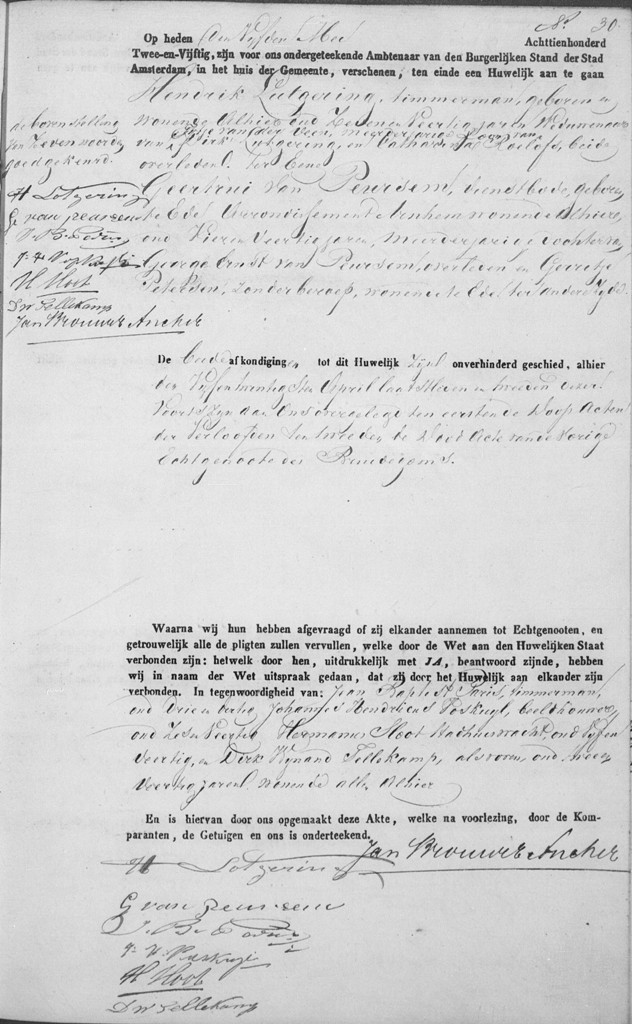 No 30.
Op heden den Vyfden Mei Achttienhonderd
Twee-en-Vijftig, zijn voor ons ondergeteekende Ambtenaar van den Burgerlijken Stand der Stad
Amsterdam, in het huis der Gemeente, verschenen, ten einde een Huwelijk aan te gaan
Hendrik Lutgering, timmerman, geboren en
wonende alhier oud Zes en Veertig jaren Weduwenaar
van der Veen, meerderjarige Zoon van
van Dirk Lutgering, en Catharina Roelofs, beide
overleden. ter Eene
Geertrui van Peursem, dienstbode, geboren
te Ede, Arrondissement Arnhem wonende alhier,
oud Vier en Veertig jaren, meerderjarige dochter van
George Ernst van Peursem, overleden en Gerritje
Petersen, zonder beroep, wonende te Ede, ter andere zyde.
de bovenstelling
van zeven woorden
goedgekeurd.
H Lotgering
G van peursem
J. B. Paris
H Sloot
Dw Tellekamp
Jan Brouwer Ancher
De beide afkondigingen tot dit Huwelijk zijn onverhinderd geschied, alhier
den Vyf en twintigsten April laatstleden en tweeden dezer.
Voorts zyn aan Ons overgelegd ten eerste de Doop Acten
der Verloofden ten tweede de Dood Acte van de Vorige
Echtgenoote des Bruidegoms.
Waarna wij hun hebben afgevraagd of zij elkander aannemen tot Echtgenooten, en
getrouwelijk alle de pligten zullen vervullen, welke door de Wet aan den Huwelijken Staat
verbonden zijn: hetwelk door hen, uitdrukkelijk met JA, beantwoord zijnde, hebben
wij in naam der Wet uitspraak gedaan, dat zij door het Huwelijk aan elkander zijn
verbonden. In tegenwoordigheid van: Jean Baptist Paris, timmerman,
oud Drie en Vertig Johannes Hendricus Poskuyl, beeldhouwer,
oud Zes en Veertig Hermanus Sloot Nachtwacht, oud Vyf en
Veertig, en Dirk Wynand Tellekamp, als voren, oud twee en
Veertig jaren. wonende allen alhier
En is hiervan door ons opgemaakt deze Akte, welke na voorlezing, door de Kom-
paranten, de Getuigen en ons is onderteekend.
Jan Brouwer Ancher
H Lotgering
G van peursem
J. B. Paris
H Sloot
Dw Tellekamp